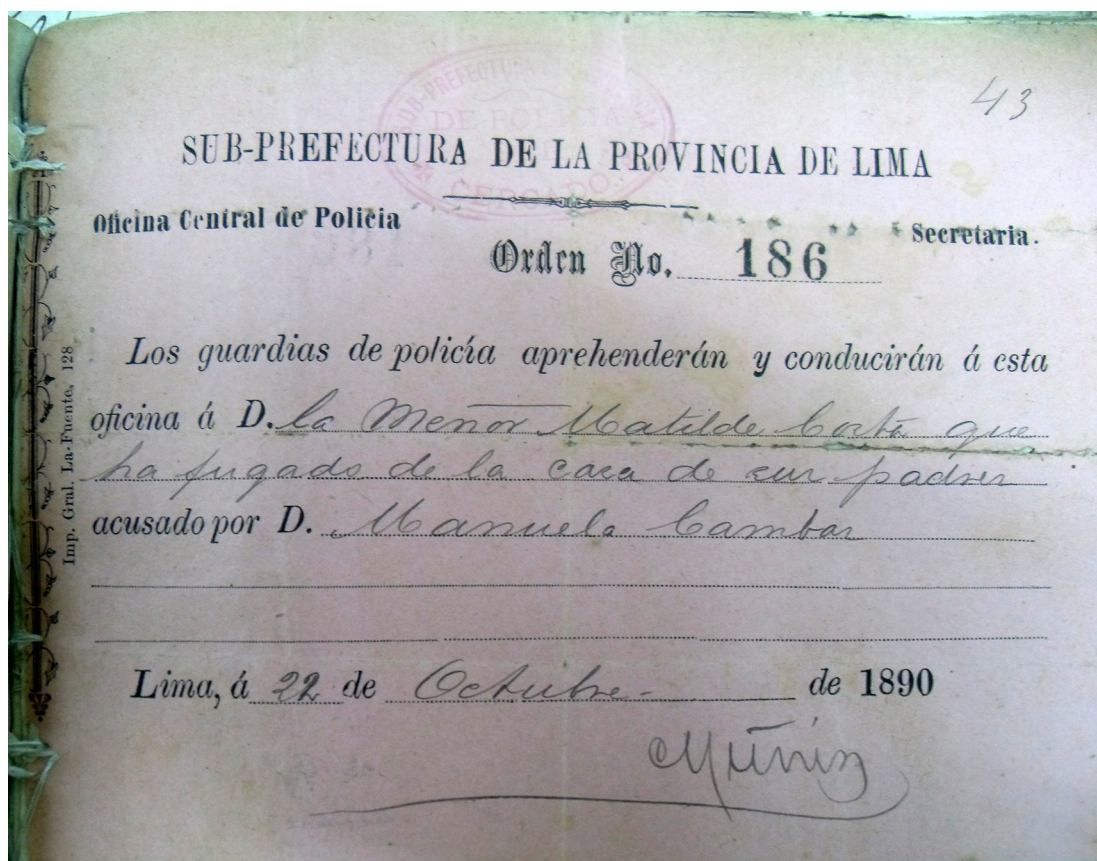 43
SUB-PREFECTURA DE LA PROVINCIA DE LIMA
SUB-PREFECTURA
DE POLICIA
CERCADO
Oficina Central de Policia
Secretaria.
Orden No. 186
Los guardias de policía aprehenderán y conducirán á esta
oficina á D. la Menor Matilde que
ha fugado de la casa de sus padres
acusado por D. Manuela
Lima, á 22 de Octubre - de 1890
Muñiz
Imp. Gral. La-Fuente, 128